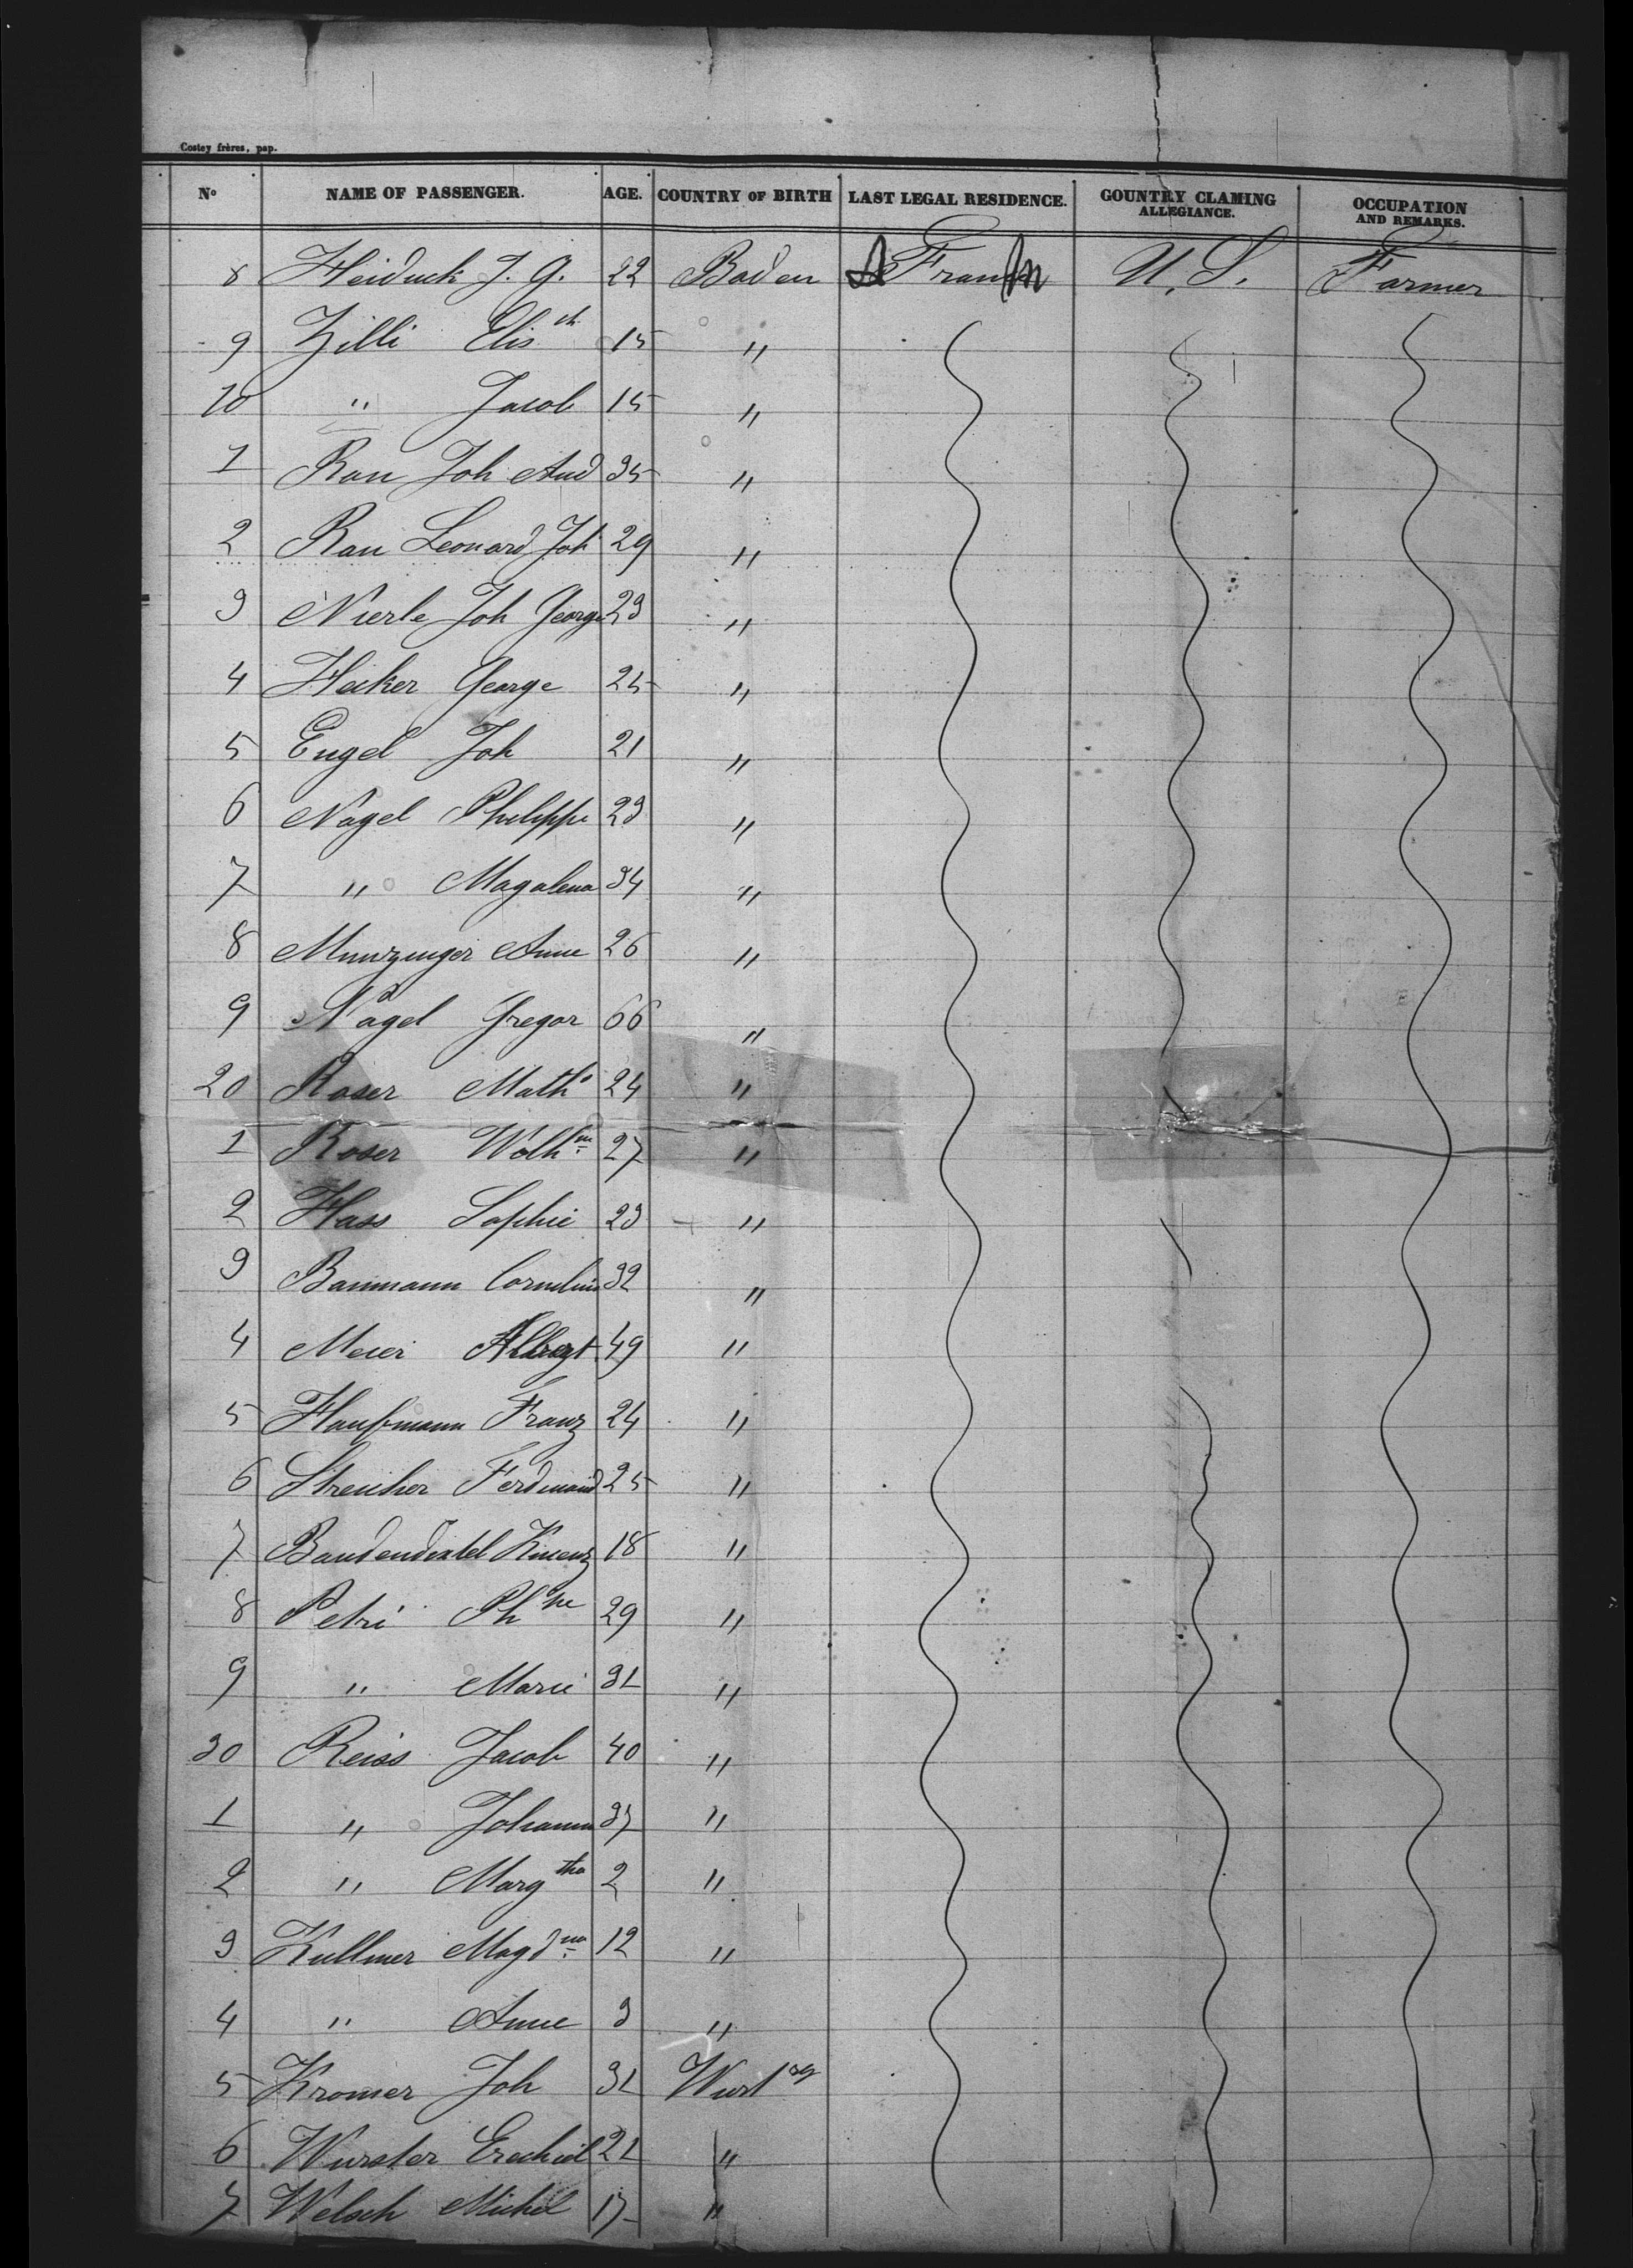 Costey frères, pap.
N° NAME OF PASSENGER. AGE. COUNTRY OF BIRTH LAST LEGAL RESIDENCE. COUNTRY CLAMING ALLEGIANCE. OCCUPATION AND REMARKS.
8 Heiduck J. G. 22 Baden France U. S. Farmer
9 Zilli Elis th 15 "
10 " Jacob 15 "
1 Rau Joh And 35 "
2 Rau Leonard Joh 29 "
3 Nierle Joh George 23 "
4 Hecker George 25 "
5 Engel Joh 21 "
6 Nagel Philippe 23 "
7 " Magalena 34 "
8 Munzinger Anne 26 "
9 Nagel Gregor 66 "
20 Roser Math a 24 "
1 Roser Wolh m 27 "
2 Hass Sophie 23 "
3 Baumann Cornelius 32 "
4 Meier Albregt 49 "
5 Haufmann Franz 24 "
6 Streicher Ferdinand 25 "
7 Baudendistel 18 "
8 Petri Ph ne 29 "
9 " Marie 31 "
30 Reiss Jacob 40 "
1 " Johanna 37 "
2 " Marg tha 2 "
3 Kullmer Magd na 12 "
4 " Anne 3 "
5 Kromer Joh 31 Wurt rg
6 Wurster Ezechiel 21 "
7 Welsch Michel 17 "